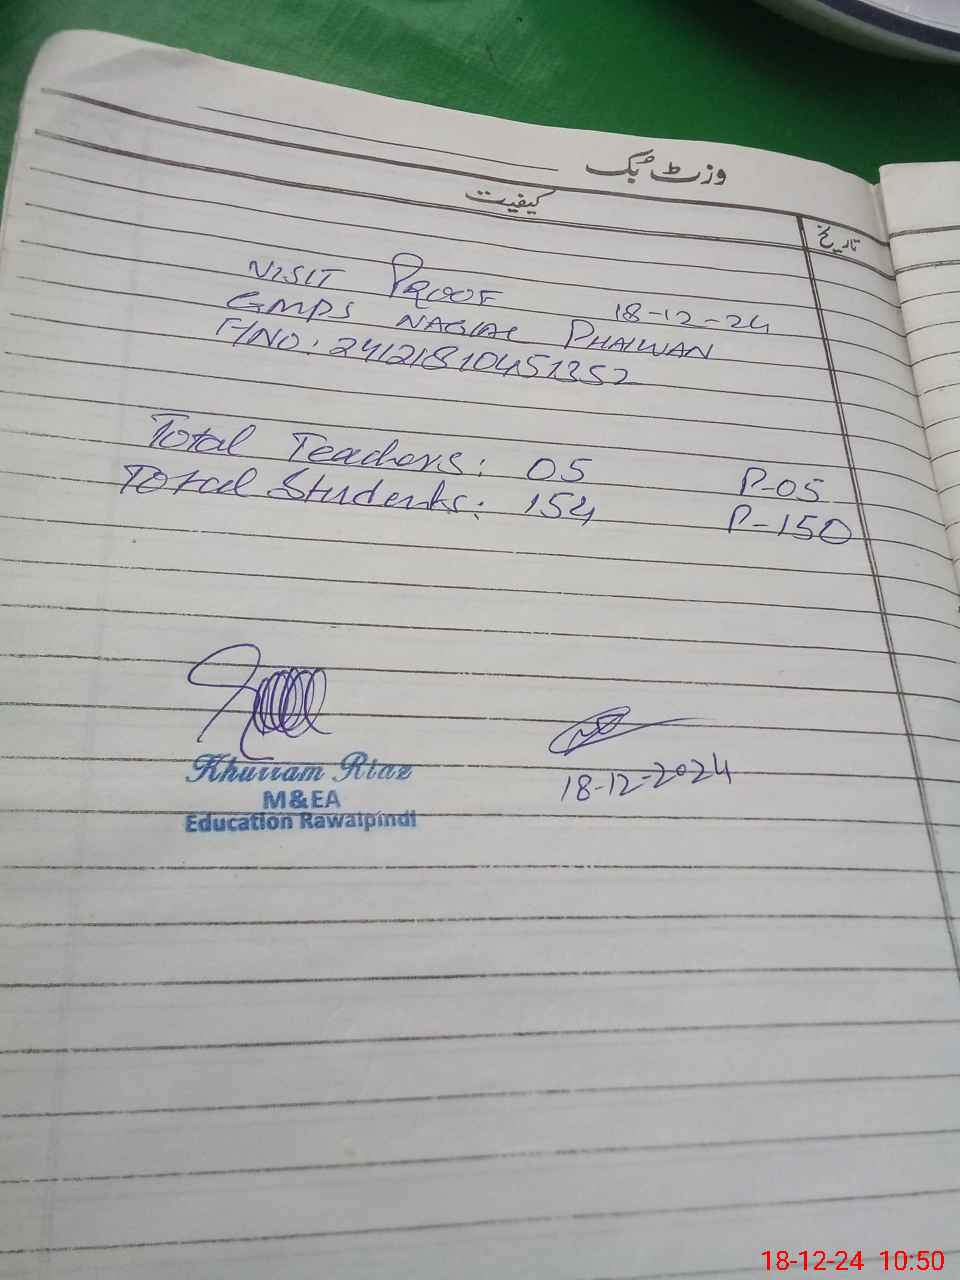 وزٹ بک
کیفیت
تاریخ
VISIT PROOF 18-12-24
GMPS NAGIAL PHALWAN
F/NO: 24121810451352
Total Teachers: 05 P-05
Total Students: 154 P-150
Khurram Riaz
M&EA
Education Rawalpindi
18-12-2024
18-12-24 10:50